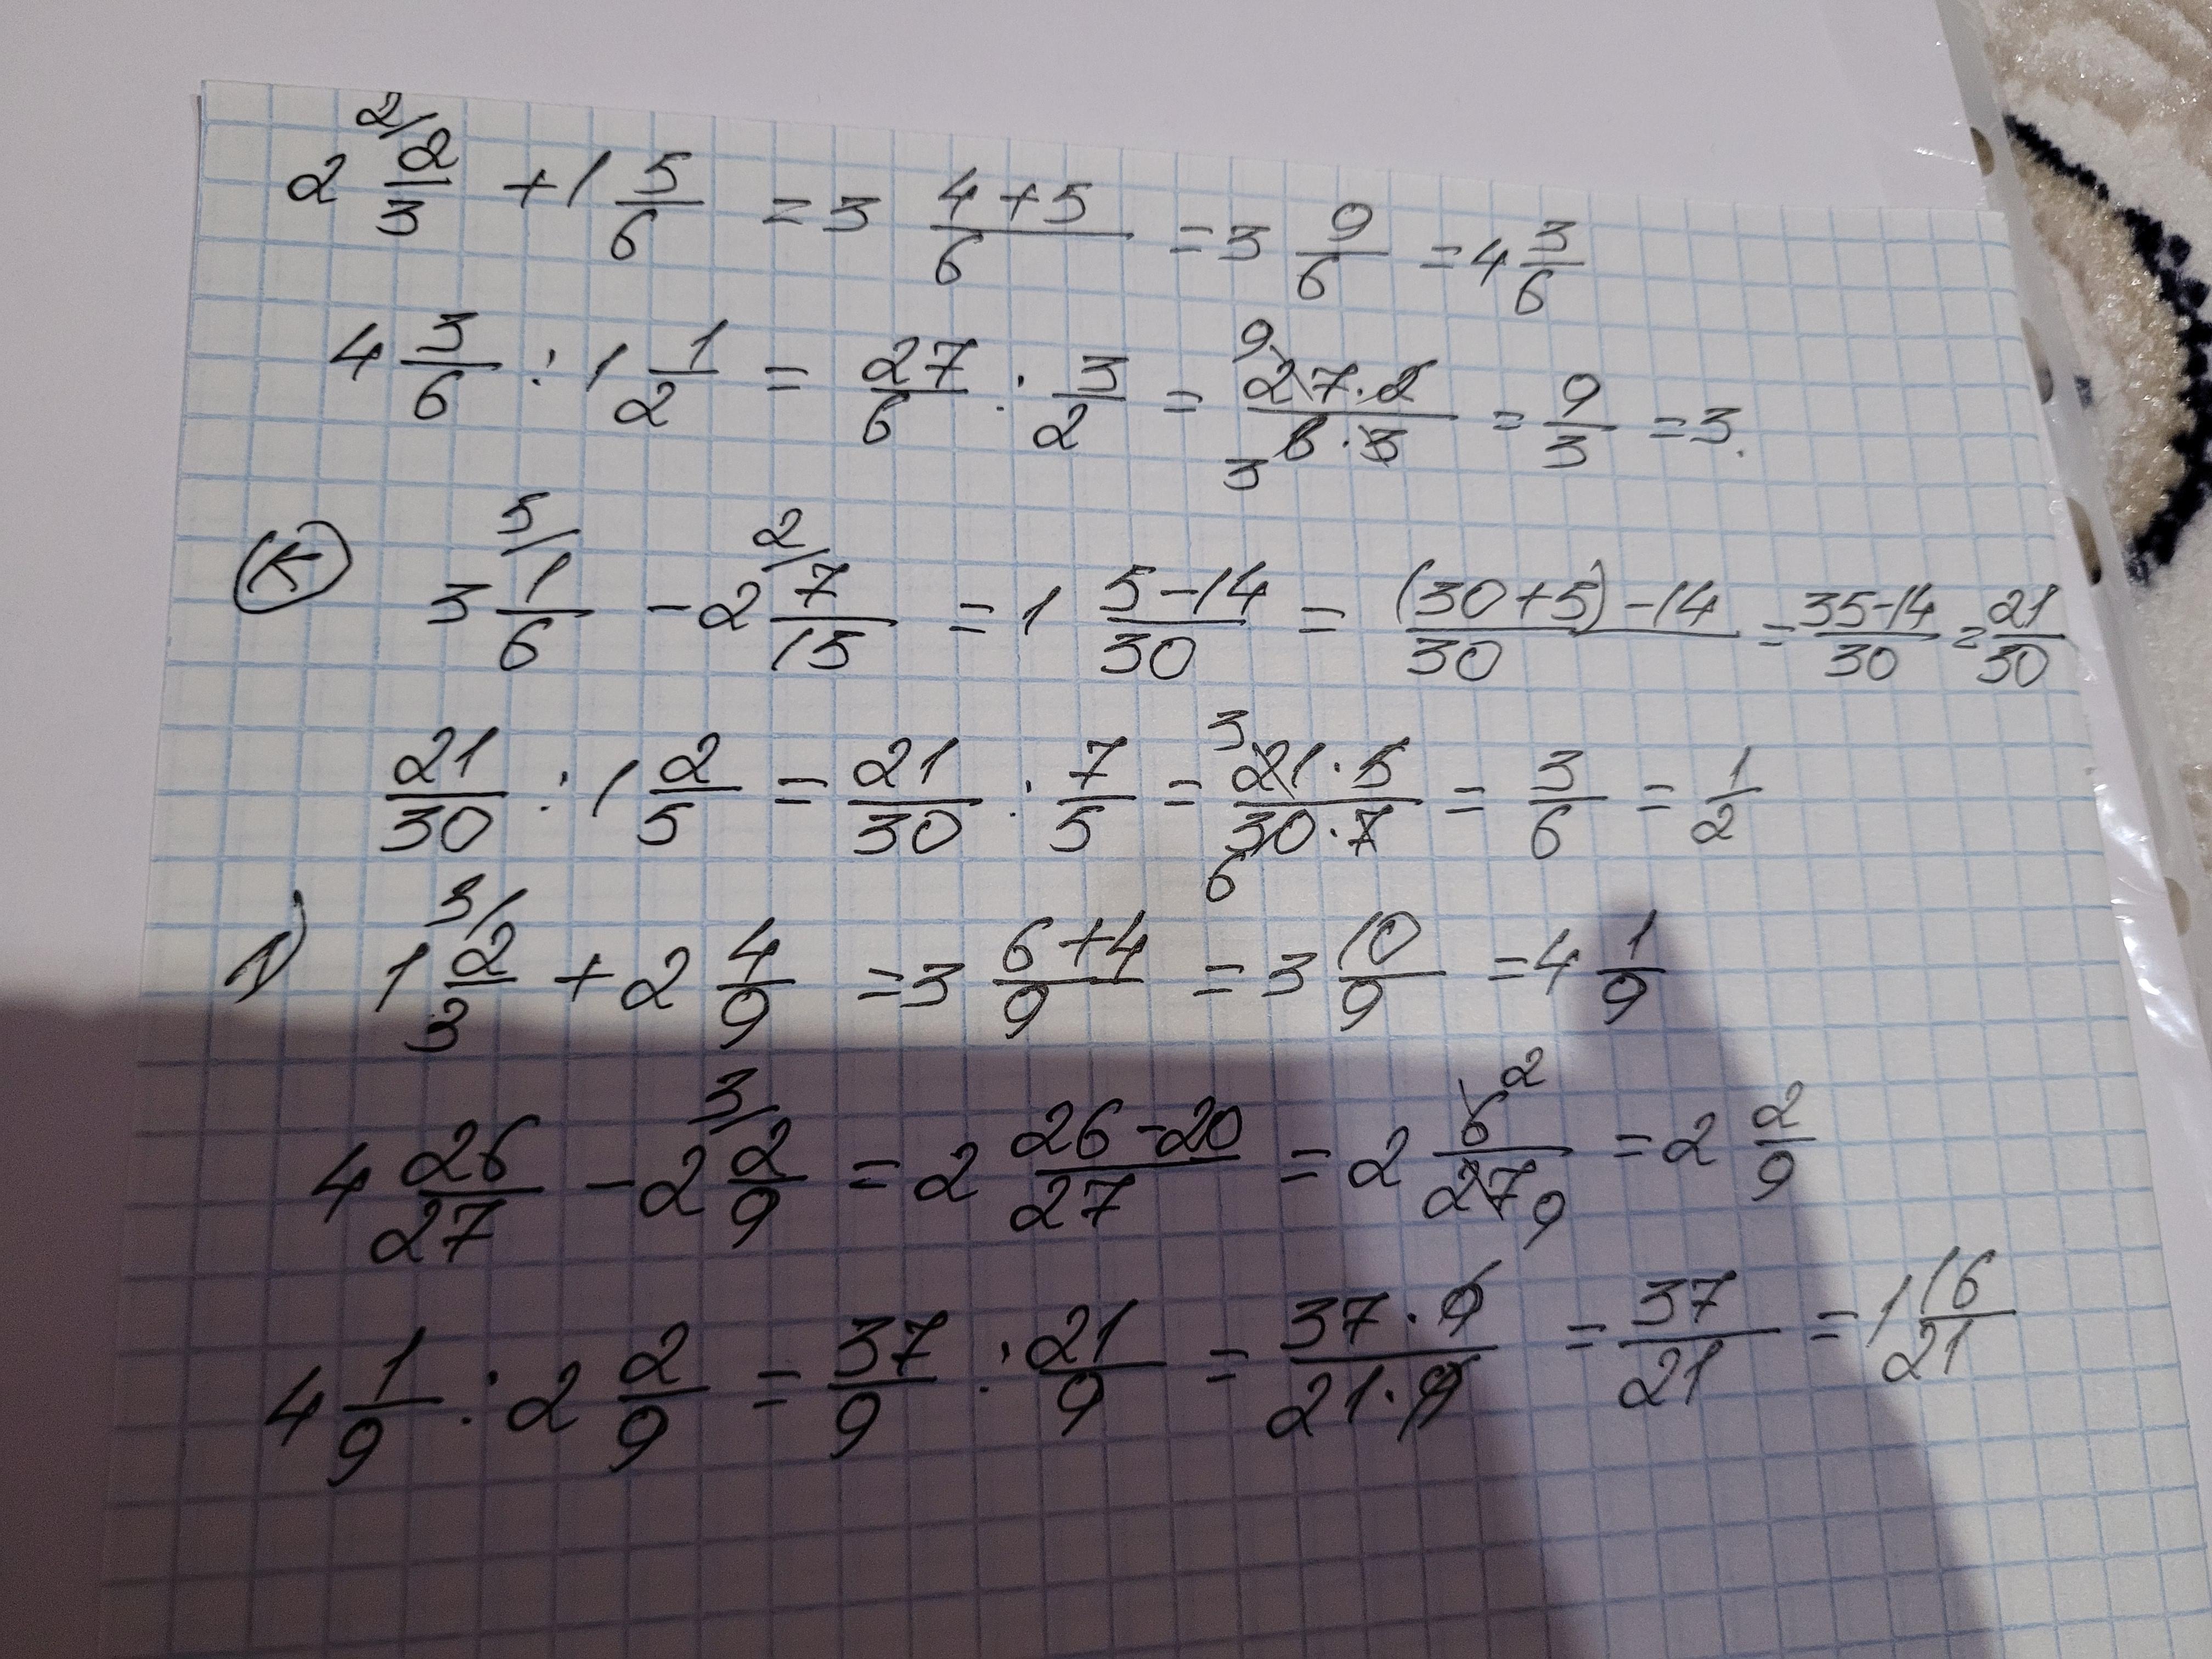 2 2/3 + 1 5/6 = 3 (4+5)/6 = 3 9/6 = 4 3/6
4 3/6 : 1 1/2 = 27/6 : 3/2 = (27·2)/(6·3) = 9/3 = 3.
K 3 1/6 - 2 7/15 = 1 (5-14)/30 = ((30+5)-14)/30 = (35-14)/30 = 21/30
21/30 : 1 2/5 = 21/30 : 7/5 = (21·5)/(30·7) = 3/6 = 1/2
Λ) 1 2/3 + 2 4/9 = 3 (6+4)/9 = 3 10/9 = 4 1/9
4 26/27 - 2 2/9 = 2 (26-20)/27 = 2 6/27 = 2 2/9
4 1/9 : 2 2/9 = 37/9 : 21/9 = (37·9)/(21·9) = 37/21 = 1 16/21